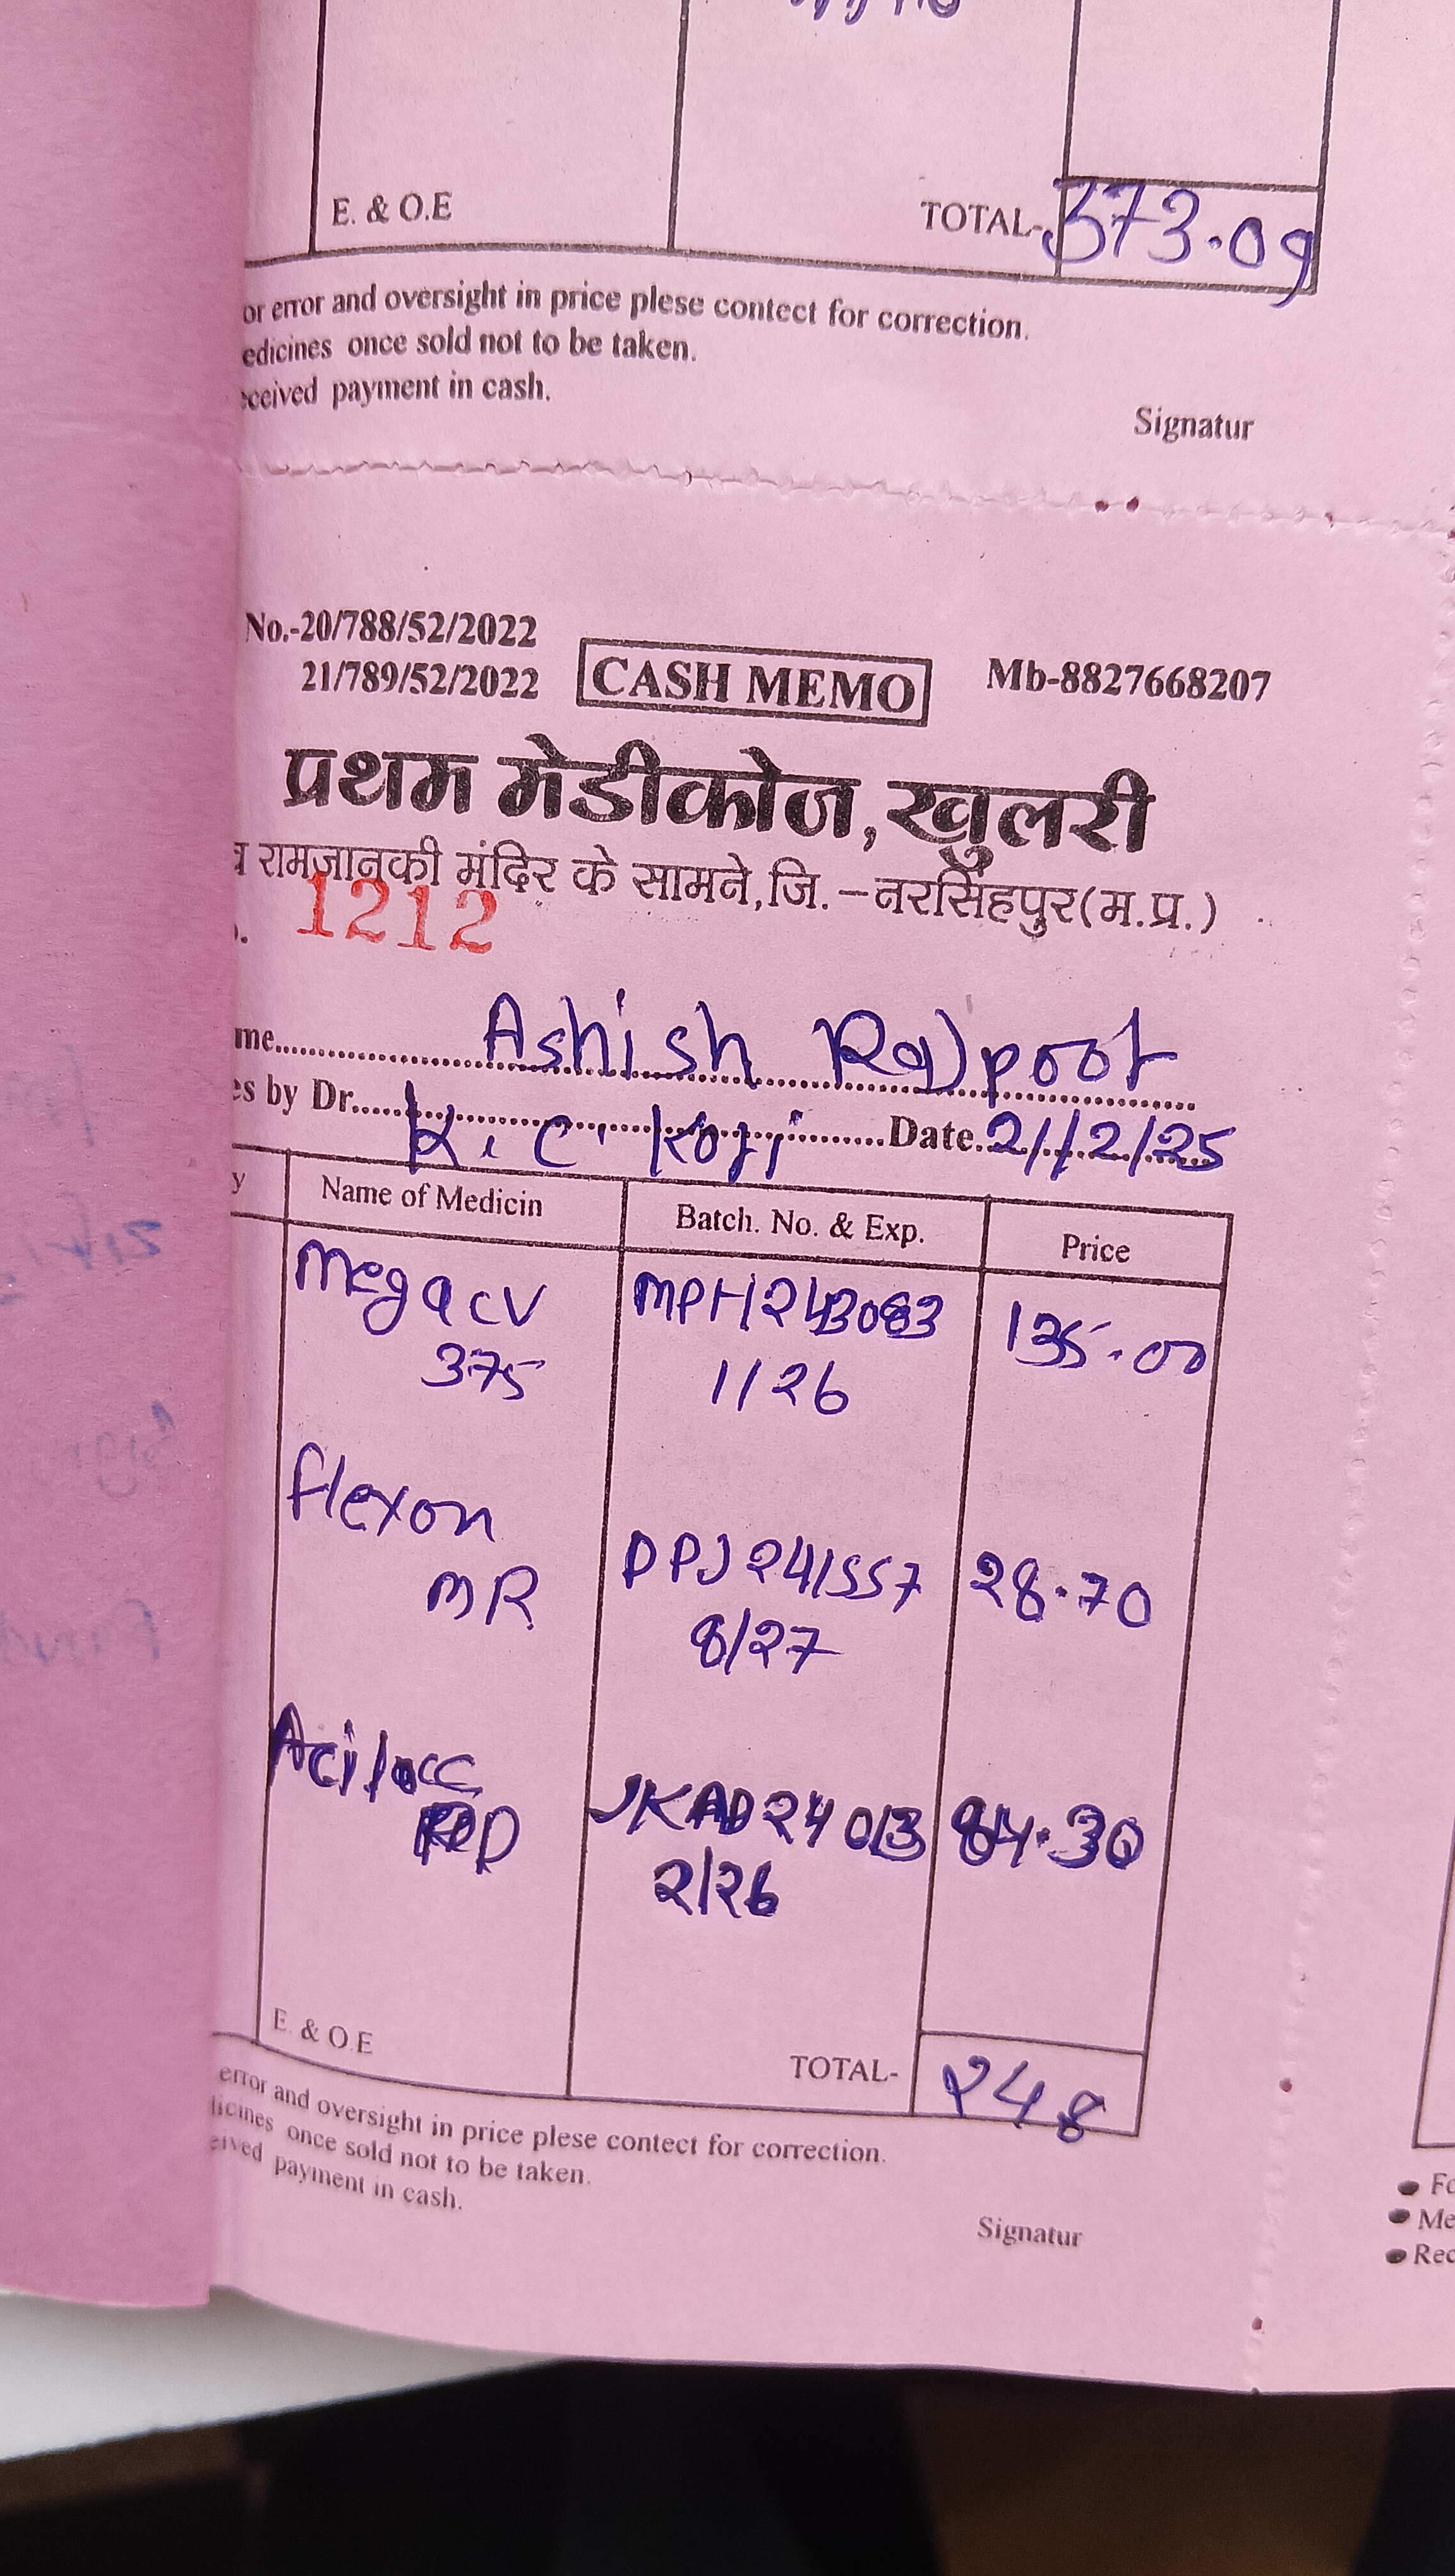 E. & O.E TOTAL- 373.09
or error and oversight in price plese contect for correction.
edicines once sold not to be taken.
eceived payment in cash.
Signatur
No.-20/788/52/2022
21/789/52/2022 CASH MEMO Mb-8827668207
प्रथम मेडीकोज, खुलरी
रामजानकी मंदिर के सामने, जि.-नरसिंहपुर (म.प्र.)
1212
me Ashish Rajpoot
es by Dr. K. C. Kori Date. 21/2/25
y Name of Medicin Batch. No. & Exp. Price
Megacv MPH243083 135.00
375 1/26
flexon
MR DPJ241557 28.70
8/27
Aciloc
RD JKAD24013 84.30
2/26
E. & O.E TOTAL- 248
error and oversight in price plese contect for correction.
licines once sold not to be taken.
eived payment in cash.
Signatur
Fo
Me
Rec